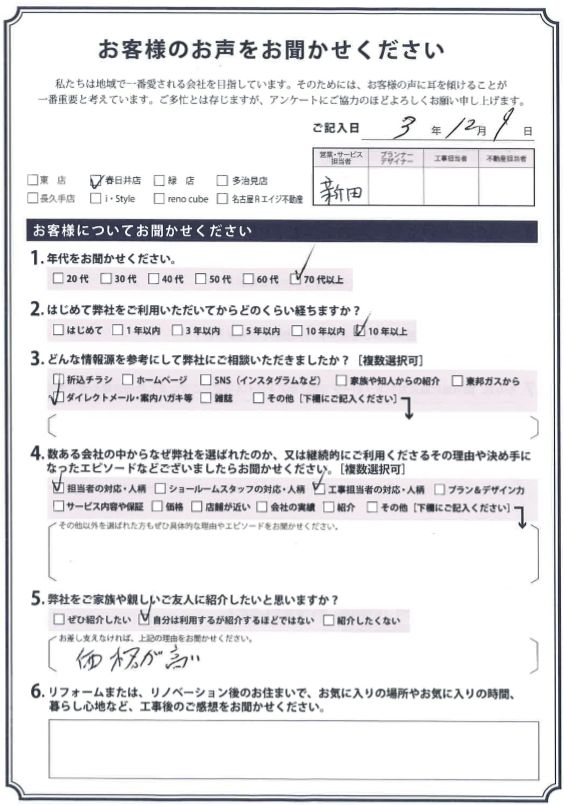 お客様のお声をお聞かせください
私たちは地域で一番愛される会社を目指しています。そのためには、お客様の声に耳を傾けることが
一番重要と考えています。ご多忙とは存じますが、アンケートにご協力のほどよろしくお願い申し上げます。
ご記入日 3 年 12 月 9 日
営業・サービス担当者 プランナーデザイナー 工事担当者 不動産担当者
新田
□東 店 ☑春日井店 □緑 店 □多治見店
□長久手店 □i・Style □reno cube □名古屋Rエイジ不動産
お客様についてお聞かせください
1.年代をお聞かせください。
□20代 □30代 □40代 □50代 □60代 ☑70代以上
2.はじめて弊社をご利用いただいてからどのくらい経ちますか?
□はじめて □1年以内 □3年以内 □5年以内 □10年以内 ☑10年以上
3.どんな情報源を参考にして弊社にご相談いただきましたか?[複数選択可]
□折込チラシ □ホームページ □SNS(インスタグラムなど) □家族や知人からの紹介 □東邦ガスから
☑ダイレクトメール・案内ハガキ等 □雑誌 □その他[下欄にご記入ください]
4.数ある会社の中からなぜ弊社を選ばれたのか、又は継続的にご利用くださるその理由や決め手に
なったエピソードなどございましたらお聞かせください。[複数選択可]
☑担当者の対応・人柄 □ショールームスタッフの対応・人柄 ☑工事担当者の対応・人柄 □プラン&デザイン力
□サービス内容や保証 □価格 □店舗が近い □会社の実績 □紹介 □その他[下欄にご記入ください]
その他以外を選ばれた方もぜひ具体的な理由やエピソードをお聞かせください。
5.弊社をご家族や親しいご友人に紹介したいと思いますか?
□ぜひ紹介したい ☑自分は利用するが紹介するほどではない □紹介したくない
お差し支えなければ、上記の理由をお聞かせください。
価格が高い
6.リフォームまたは、リノベーション後のお住まいで、お気に入りの場所やお気に入りの時間、
暮らし心地など、工事後のご感想をお聞かせください。